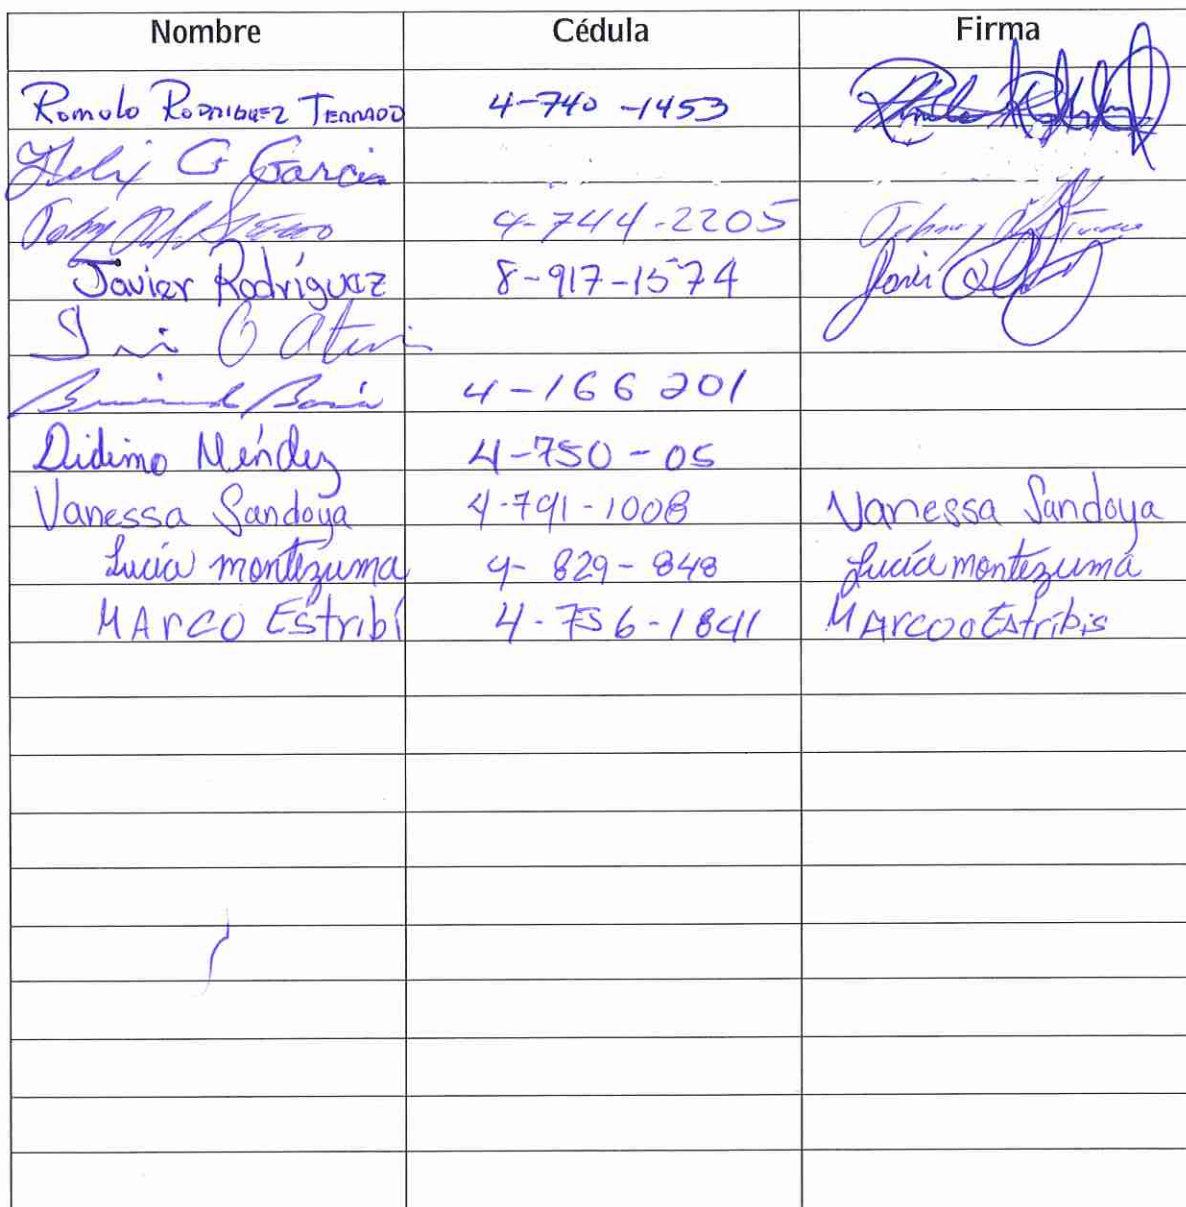 Nombre Cédula Firma
Romulo Rodriguez 4-740-1453
Felix G Garcia
4-744-2205
Javier Rodríguez 8-917-1574
4-166 201
Didimo Méndez 4-750-05
Vanessa Sandoya 4-791-1008 Vanessa Sandoya
Lucía montezuma 4-829-848 Lucía montezuma
MArco Estribí 4-756-1841 MArco Estribis